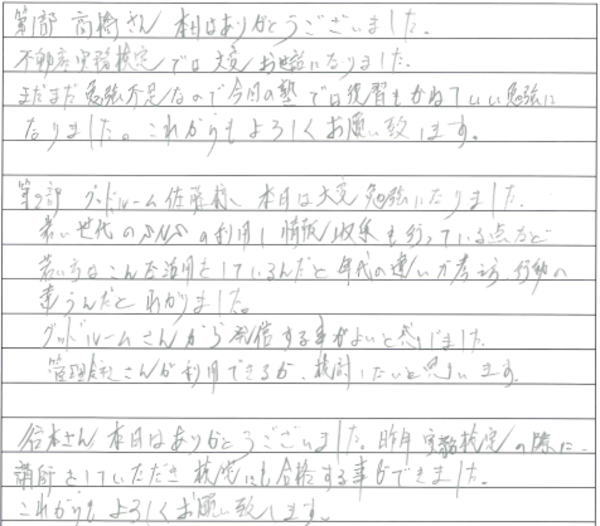 第1部 高橋さん 本日はありがとうございました。
不動産実務検定では大変お世話になりました。
まだまだ勉強不足なので今回の塾では復習もかねていい勉強に
なりました。これからもよろしくお願い致します。
第2部 グッドルーム佐藤様、本日は大変勉強になりました。
若い世代のSNSの利用し情報収集も行っている点など
若い方はこんな活用をしているんだと年代の違いが考え方、行動の
違うんだとわかりました。
グッドルームさんから発信する事がよいと感じました。
管理会社さんが利用できるか、検討したいと思います。
谷本さん 本日はありがとうございました。昨年実務検定の際に
講師をしていただき検定にも合格する事ができました。
これからもよろしくお願い致します。